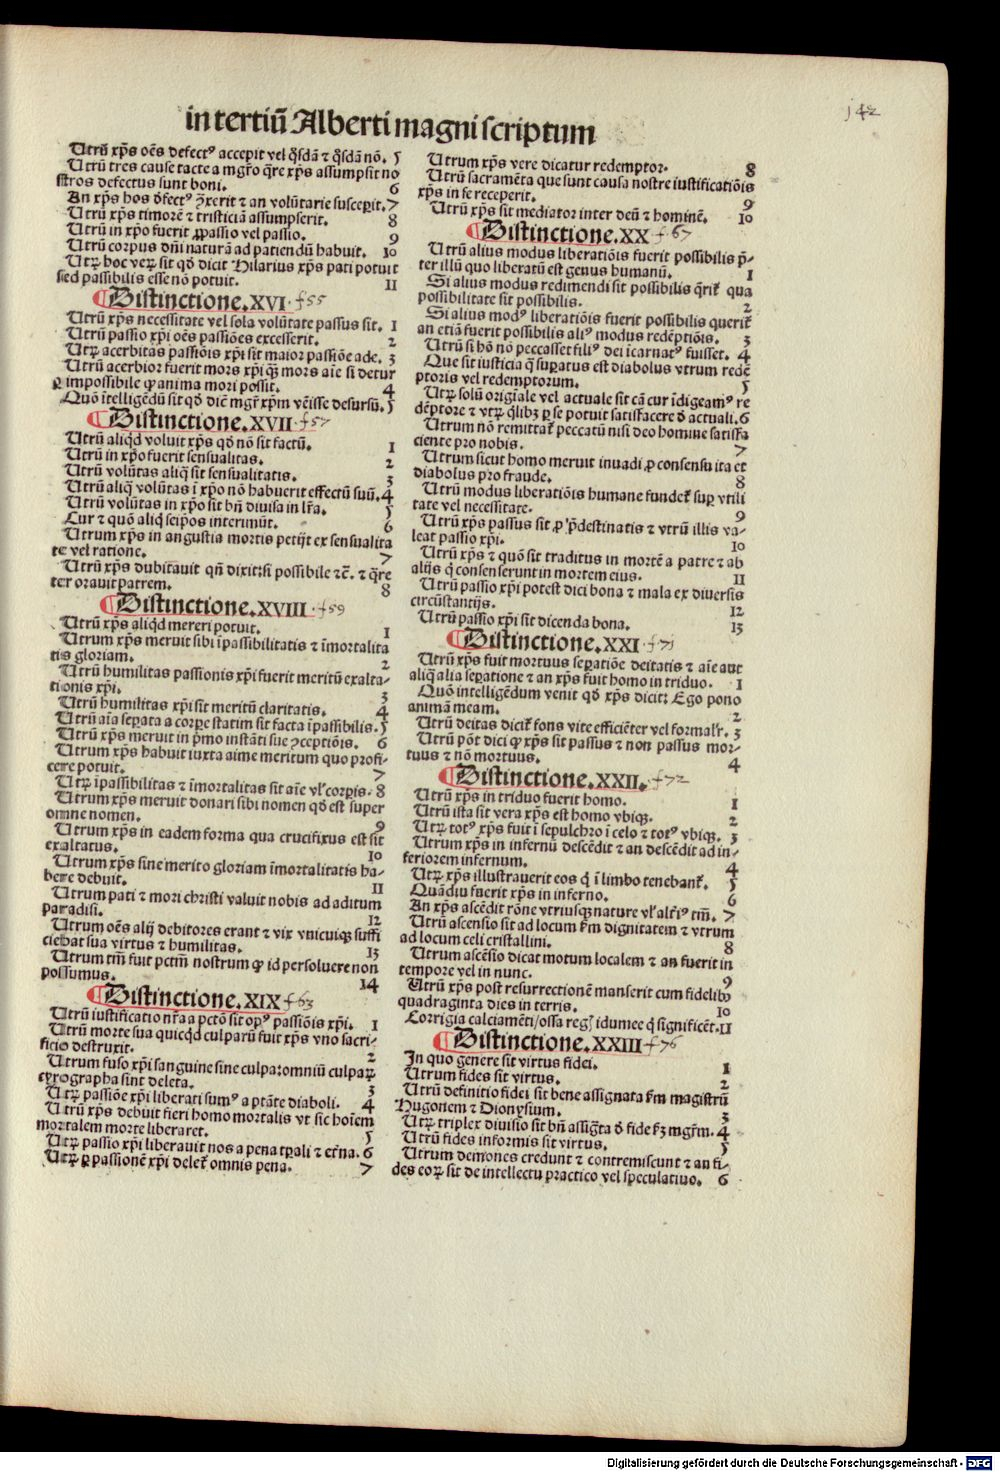 142
in tertiū Alberti magni scriptum
Utrū xp̄s oēs defectꝰ accepit vel q̄sdā ⁊ q̄sdā nō. 5
Utrū tres cause tacte a mgr̄o q̄re xp̄s assumpsit no
stros defectus sunt boni. 6
An xp̄s hos d̄fectꝰ ꝯtraxerit ⁊ an volūtarie susceperit. 7
Utrū xp̄s timorē ⁊ tristiciā assumpserit. 8
Utrū in xp̄o fuerit ꝓpassio vel passio. 9
Utrū corpus dn̄i naturā ad patiendū habuit. 10
Utꝝ hoc veꝝ sit qd̄ dicit Hilarius xp̄s pati potuit
sed passibilis esse nō potuit. 11
Distinctione.XVI. f55
Utrū xp̄s necessitate vel sola volūtate passus sit. 1
Utrū passio xp̄i oēs passiōes excesserit. 2
Utꝝ acerbitas passiōis xp̄i sit maior passiōe ade. 3
Utrū acerbior fuerit mors xp̄i qꝫ mors aīe si detur
ꝑ impossibile ꝙ anima mori possit. 4
Quō ītelligēdū sit qd̄ diē mgr̄ xp̄m vēisse desursū. 5
Distinctione.XVII. f57
Utrū aliqd voluit xp̄s qd̄ nō sit factū. 1
Utrū in xp̄o fuerit sensualitas. 2
Utrū volūtas aliq̄ sit sensualitatis. 3
Utrū aliq̄ volūtas ī xp̄o nō habuerit effectū suū. 4
Utrū volūtas in xp̄o sit bn̄ divisa in lr̄a. 5
Cur ⁊ quō aliq̄ seip̄os interimūt. 6
Utrum xp̄s in angustia mortis petijt ex sensualita
te vel ratione. 7
Utrū xp̄s dubitauit qn̄ dixit: si possibile ⁊c̄. ⁊ q̄re
ter orauit patrem. 8
Distinctione.XVIII. f59
Utrū xp̄s aliqd mereri potuit. 1
Utrum xp̄s meruit sibi īpassibilitatis ⁊ īmortalita
tis gloriam. 2
Utrū humilitas passionis xp̄i fuerit meritū exalta-
tionis xp̄i. 3
Utrū humilitas xp̄i sit meritū claritatis. 4
Utrū aīa seꝑata a corꝑe statim sit facta īpassibilis. 5
Utrū xp̄s meruit in p̄mo instāti sue ꝯceptiōis. 6
Utrum xp̄s habuit iuxta aīme meritum quo profi-
cere potuit. 7
Utꝝ īpassibilitas ⁊ īmortalitas sit aīe vl̄ corꝑis. 8
Utrum xp̄s meruit donari sibi nomen qd̄ est super
omne nomen. 9
Utrum xp̄s in eadem forma qua crucifixus est sit
exaltatus. 10
Utrum xp̄s sine merito gloriam īmortalitatis ha-
bere debuit. 11
Utrum pati ⁊ mori christi valuit nobis ad aditum
paradisi. 12
Utrum oēs alij debitores erant ⁊ vix vnicuiqꝫ suffi
ciebat sua virtus ⁊ humilitas. 13
Utrum tm̄ fuit pctm̄ nostrum ꝙ id persoluere non
possumus. 14
Distinctione.XIX. f63
Utrū iustificatio nr̄a a pctō sit opꝰ passiōis xp̄i. 1
Utrū morte sua quicqd culparū fuit xp̄s vno sacri-
ficio destruxit. 2
Utrum fuso xp̄i sanguine sine culpa: omniū culpaꝝ
cyrographa sint deleta. 3
Utꝝ passiōe xp̄i liberati sumꝰ a ptāte diaboli. 4
Utrū xp̄s debuit fieri homo mortalis vt sic hoīem
mortalem morte liberaret. 5
Utꝝ passio xp̄i liberauit nos a pena tꝑali ⁊ et̄na. 6
Utꝝ ꝑ passionē xp̄i delet᷑ omnis pena. 7
Utrum xp̄s vere dicatur redemptor. 8
Utrū sacramēta que sunt causa nostre iustificatiōis
xp̄s in se receperit. 9
Utrū xp̄s sit mediator inter deū ⁊ hominē. 10
Distinctione.XX f67
Utrū alius modus liberatiōis fuerit possibilis p̄-
ter illū quo liberatū est genus humanū. 1
Si alius modus redimendi sit possibilis q̄rit᷑ qua
possibilitate sit possibilis. 2
Si alius modꝰ liberatiōis fuerit possibilis querit᷑
an etiā fuerit possibilis aliꝰ modus redēptiōis. 3
Utrū si hō nō peccasset filiꝰ dei īcarnatꝰ fuisset. 4
Que sit iusticia q̄ suꝑatus est diabolus vtrum redē
ptoris vel redemptorum. 5
Utꝝ solū origīale vel actuale sit cā cur īdigeamꝰ re
dēptore ⁊ vtꝝ q̄libꝫ ꝑ se potuit satisfacere d̄ actuali. 6
Utrum nō remittat᷑ peccatū nisi deo homine satisfa
ciente pro nobis. 7
Utrum sicut homo meruit inuadi ꝓ consensu ita et
diabolus pro fraude. 8
Utrū modus liberatiōis humane fundet᷑ suꝑ vtili
tate vel necessitate. 9
Utrū xp̄s passus sit ꝓ p̄destinatis ⁊ vtrū illis va-
leat passio xp̄i. 10
Utrū xp̄s ⁊ quō sit traditus in mortē a patre ⁊ ab
alijs q̄ consenserunt in mortem eius. 11
Utrū passio xp̄i potest dici bona ⁊ mala ex diversis
circūstantijs. 12
Utrū passio xp̄i sit dicenda bona. 13
Distinctione.XXI f71
Utrū xp̄s fuit mortuus seꝑatiōe deitatis ⁊ aīe aut
aliq̄ alia seꝑatione ⁊ an xp̄s fuit homo in triduo. 1
Quō intelligēdum venit qd̄ xp̄s dicit: Ego pono
animā meam. 2
Utrū deitas dicit᷑ fons vite efficiēter vel formalr̄. 3
Utrū pōt dici ꝙ xp̄s sit passus ⁊ non passus mor-
tuus ⁊ nō mortuus. 4
Distinctione.XXII. f72
Utrū xp̄s in triduo fuerit homo. 1
Utrū ista sit vera xp̄s est homo vbiqꝫ. 2
Utꝝ totꝰ xp̄s fuit ī sepulchro ī celo ⁊ totꝰ vbiqꝫ. 3
Utrum xp̄s in infernū descēdit ⁊ an descēdit ad in-
feriorem infernum. 4
Utꝝ xp̄s illustrauerit eos q̄ ī limbo tenebant᷑. 5
Quādiu fuerit xp̄s in inferno. 6
An xp̄s ascēdit rōne vtriusqꝫ nature vl̄ altīꝰ tm̄. 7
Utrū ascensio sit ad locum ẜm dignitatem ⁊ vtrum
ad locum celi cristallini. 8
Utrum ascēsio dicat motum localem ⁊ an fuerit in
tempore vel in nunc. 9
Utrū xp̄s post resurrectionē manserit cum fidelibꝰ
quadraginta dies in terris. 10
Corrigia calciamēti/ossa reḡ idumee qd̄ significēt. 11
Distinctione.XXIII f76
In quo genere sit virtus fidei. 1
Utrum fides sit virtus. 2
Utrū definitio fidei sit bene assignata ẜm magistrū
Hugonem ⁊ Dionysium. 3
Utꝝ triplex divisio sit bn̄ assigta d̄ fide ẜꝫ mgr̄m. 4
Utrū fides informis sit virtus. 5
Utrum demones credunt ⁊ contremiscunt ⁊ an fi-
des eoꝝ sit de intellectu practico vel speculatiuo. 6
Digitalisierung gefördert durch die Deutsche Forschungsgemeinschaft - DFG